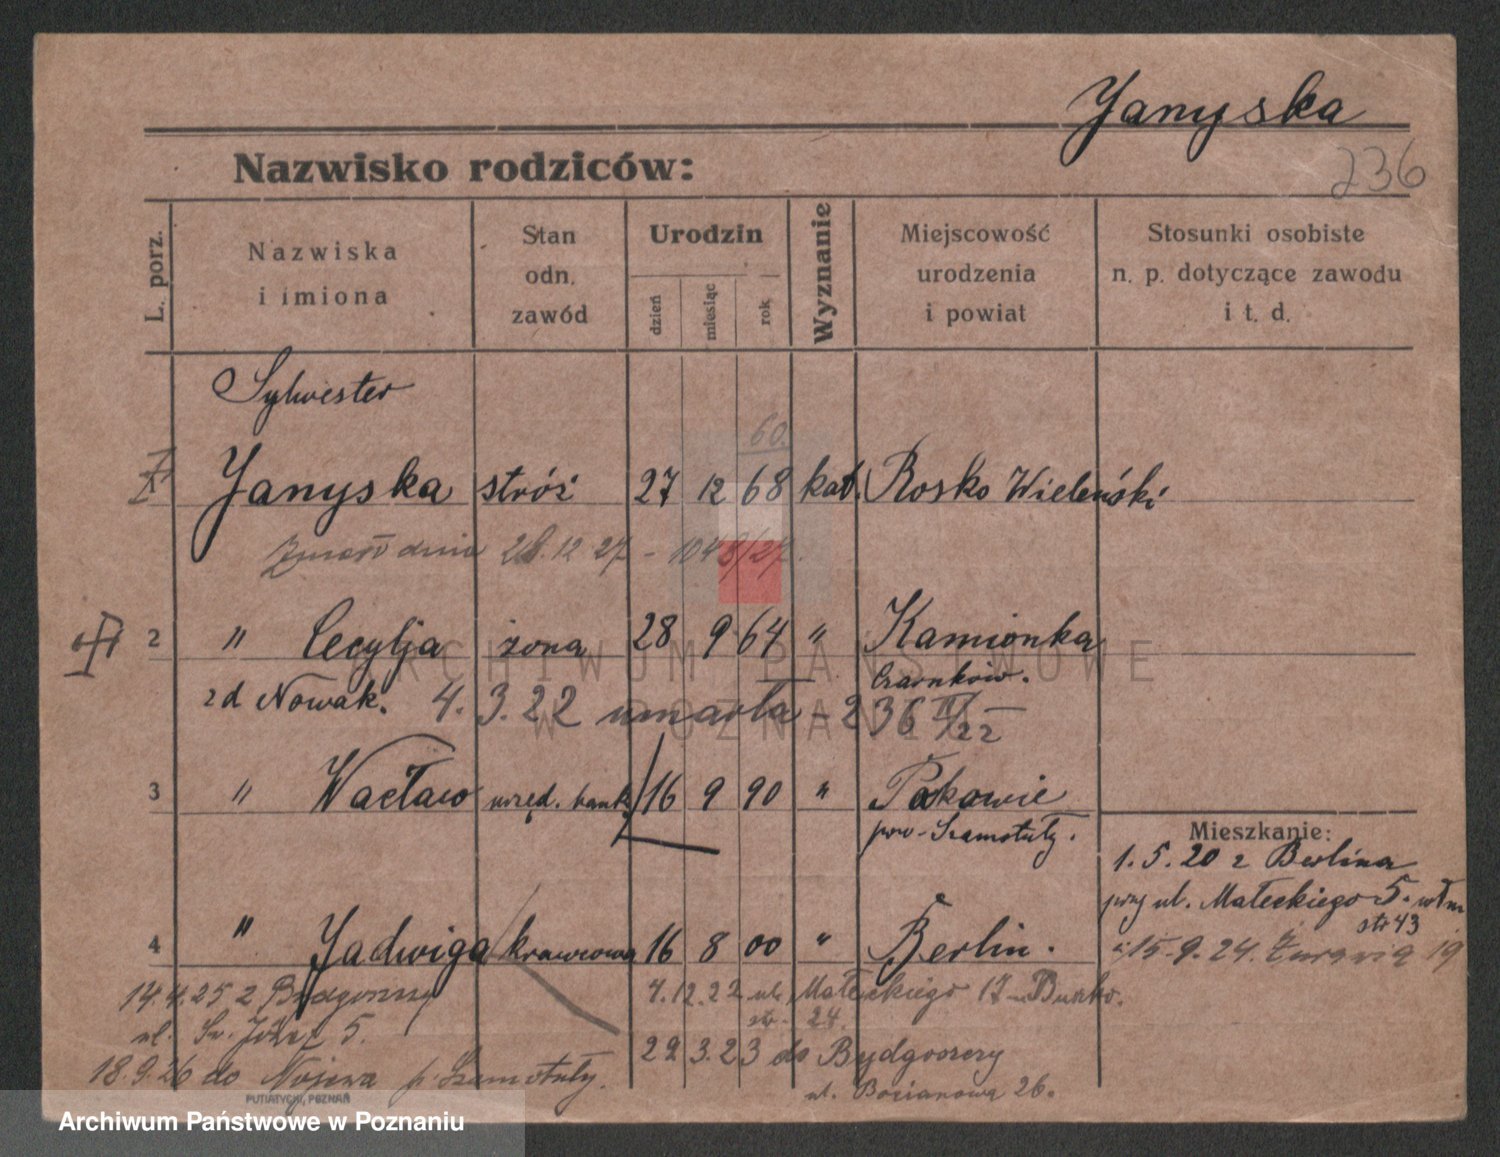 Janyska
236
Nazwisko rodziców:
L. porz.
Nazwiska
i imiona
Stan
odn.
zawód
Urodzin
dzień
miesiąc
rok
Wyznanie
Miejscowość
urodzenia
i powiat
Stosunki osobiste
n. p. dotyczące zawodu
i t. d.
Sylwester
60.
Janyska stróż 27 12 68 kat. Rosko Wieleński
Zmarł dnia 28.12 27 - 1048/27.
2 " Cecylja żona 28 9 64 " Kamionka
Czarnków.
zd Nowak. 4.3.22 umarła - 236 II/22
3 " Wacław urzęd. bank. 16 9 90 "
pow. Szamotuły.
Mieszkanie:
1.5.20 z Berlina
przy ul. Małeckiego 5.
str 43
4 " Jadwiga krawcowa 16 8 00 " Berlin.
15.9.24. Żurawia 19
14.4.25 z Bydgoszczy
ul. Św. Józef 5.
7.12.22 ul. Małeckiego 17
str. 24.
22 3.23 do Bydgoszczy
ul. Bocianowa 26.
18.9.26 do Nojewa p. Szamotuły.
PUTIATYCKI, POZNAŃ
ARCHIWUM PAŃSTWOWE
W POZNANIU
Archiwum Państwowe w Poznaniu